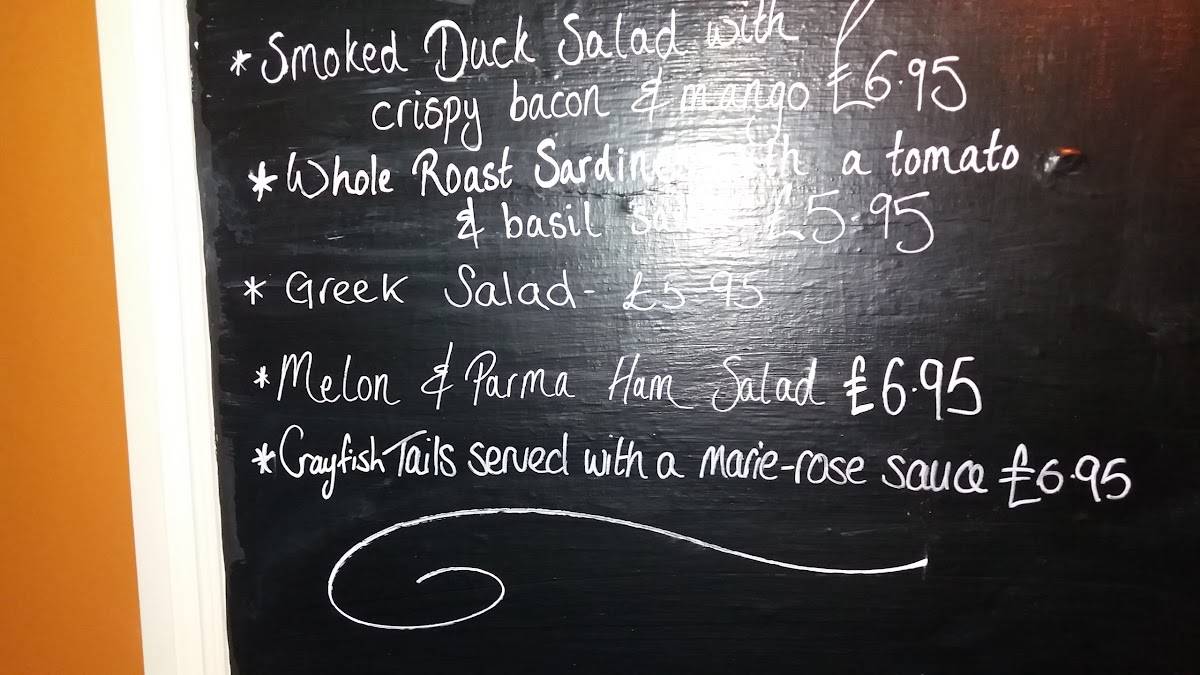 * Smoked Duck Salad with
crispy bacon & mango £6.95
* Whole Roast Sardines with a tomato
& basil £5.95
* Greek Salad - £5.95
* Melon & Parma Ham Salad £6.95
* Crayfish Tails served with a marie-rose sauce £6.95